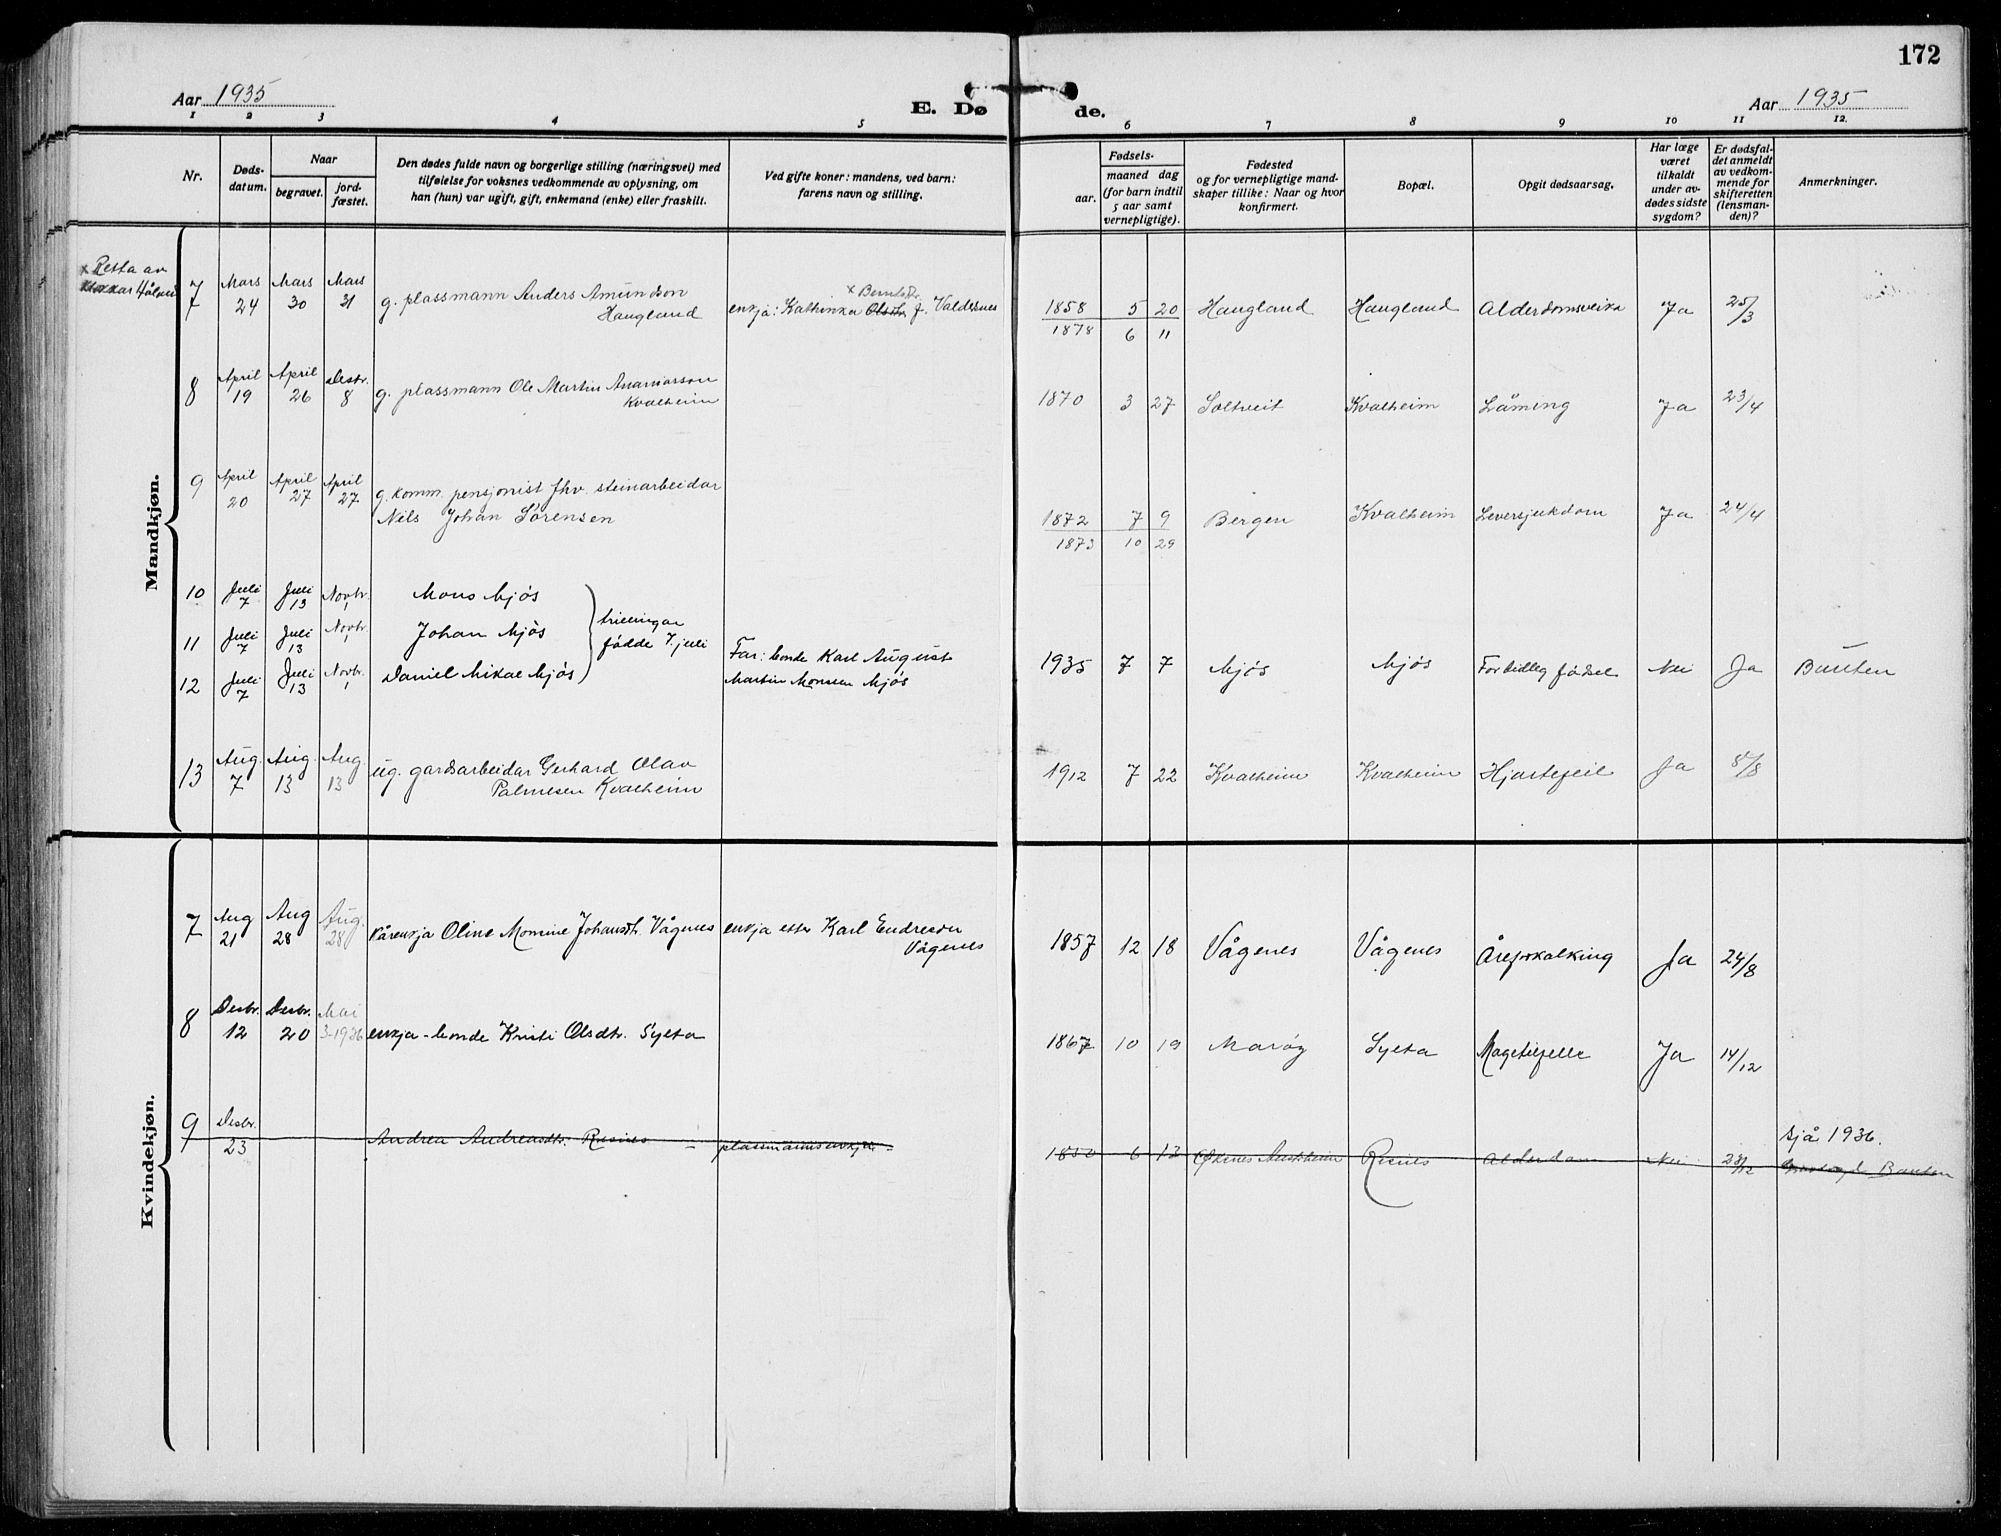 172
Aar 1935
E. Dø de.
Aar 1935
1 2 3 4 5 6 7 8 9 10 11 12.
Nr.
Døds-
datum.
Naar
begravet.
jord-
fæstet.
Den dødes fulde navn og borgerlige stilling (næringsvei) med
tilføielse for voksnes vedkommende av oplysning, om
han (hun) var ugift, gift, enkemand (enke) eller fraskilt.
Ved gifte koner: mandens, ved barn:
farens navn og stilling.
Fødsels-
aar.
maaned dag
(for barn indtil
5 aar samt
vernepligtige).
Fødested
og for vernepligtige mand-
skaper tillike: Naar og hvor
konfirmert.
Bopæl.
Opgit dødsaarsag.
Har læge
været
tilkaldt
under av-
dødes sidste
sygdom?
Er dødsfal-
det anmeldt
av vedkom-
mende for
skifteretten
(lensman-
den)?
Anmerkninger.
Mandkjøn.
x Retta av
7 Mars 24 Mars 30 Mars 31 g. plassmann Anders Amundson
Haugland
x Berntsdtr.
enkja: Kathinka Olsdtr. f. Valdersnes
1858 5 20 Haugland Haugland Alderdomsveika Ja 25/3
1878 6 11
8 April 19 April 26 Desbr. 8 g. plassmann Ole Martin Ananiasson
Kvalheim
1870 3 27 Soltveit Kvalheim Låming Ja 23/4
9 April 20 April 27 April 27 g. komm. pensjonist fhv. steinarbeidar
Nils Johan Sørensen
1872 7 9 Bergen Kvalheim Leversjukdom Ja 24/4
1873 10 29
10 Juli 7 Juli 13 Novbr. 1 Mons Mjøs
11 Juli 7 Juli 13 Novbr. 1 Johan Mjøs
12 Juli 7 Juli 13 Novbr. 1 Daniel Mikal Mjøs
trillingar
fødde 7. juli
Far: bonde Karl August
Martin Monssen Mjøs
1935 7 7 Mjøs Mjøs For tidleg fødsel Nei Ja Bauten
13 Aug. 7 Aug. 13 Aug. 13 ug. gardsarbeidar Gerhard Olav
Palmesen Kvalheim
1912 7 22 Kvalheim Kvalheim Hjartefeil Ja 8/8
Kvindekjøn.
7 Aug 21 Aug 28 Aug. 28 kårenkja Oline Momine Johansdtr. Vågenes enkja etter Karl Endreson
Vågenes
1857 12 18 Vågenes Vågenes Åreforkalking Ja 24/8
8 Desbr. 12 Desbr. 20 Mai 3-1936 enkja-bonde Kristi Olsdtr. Sylta
1867 10 19 Marøy Sylta Magetilfelle Ja 14/12
9 Desbr. 23 Andrea Andreasdtr. Risnes plassmannsenkja
1850 6 12 Risnes Alderdom Nei 28/12
Sjå 1936.
Bauten